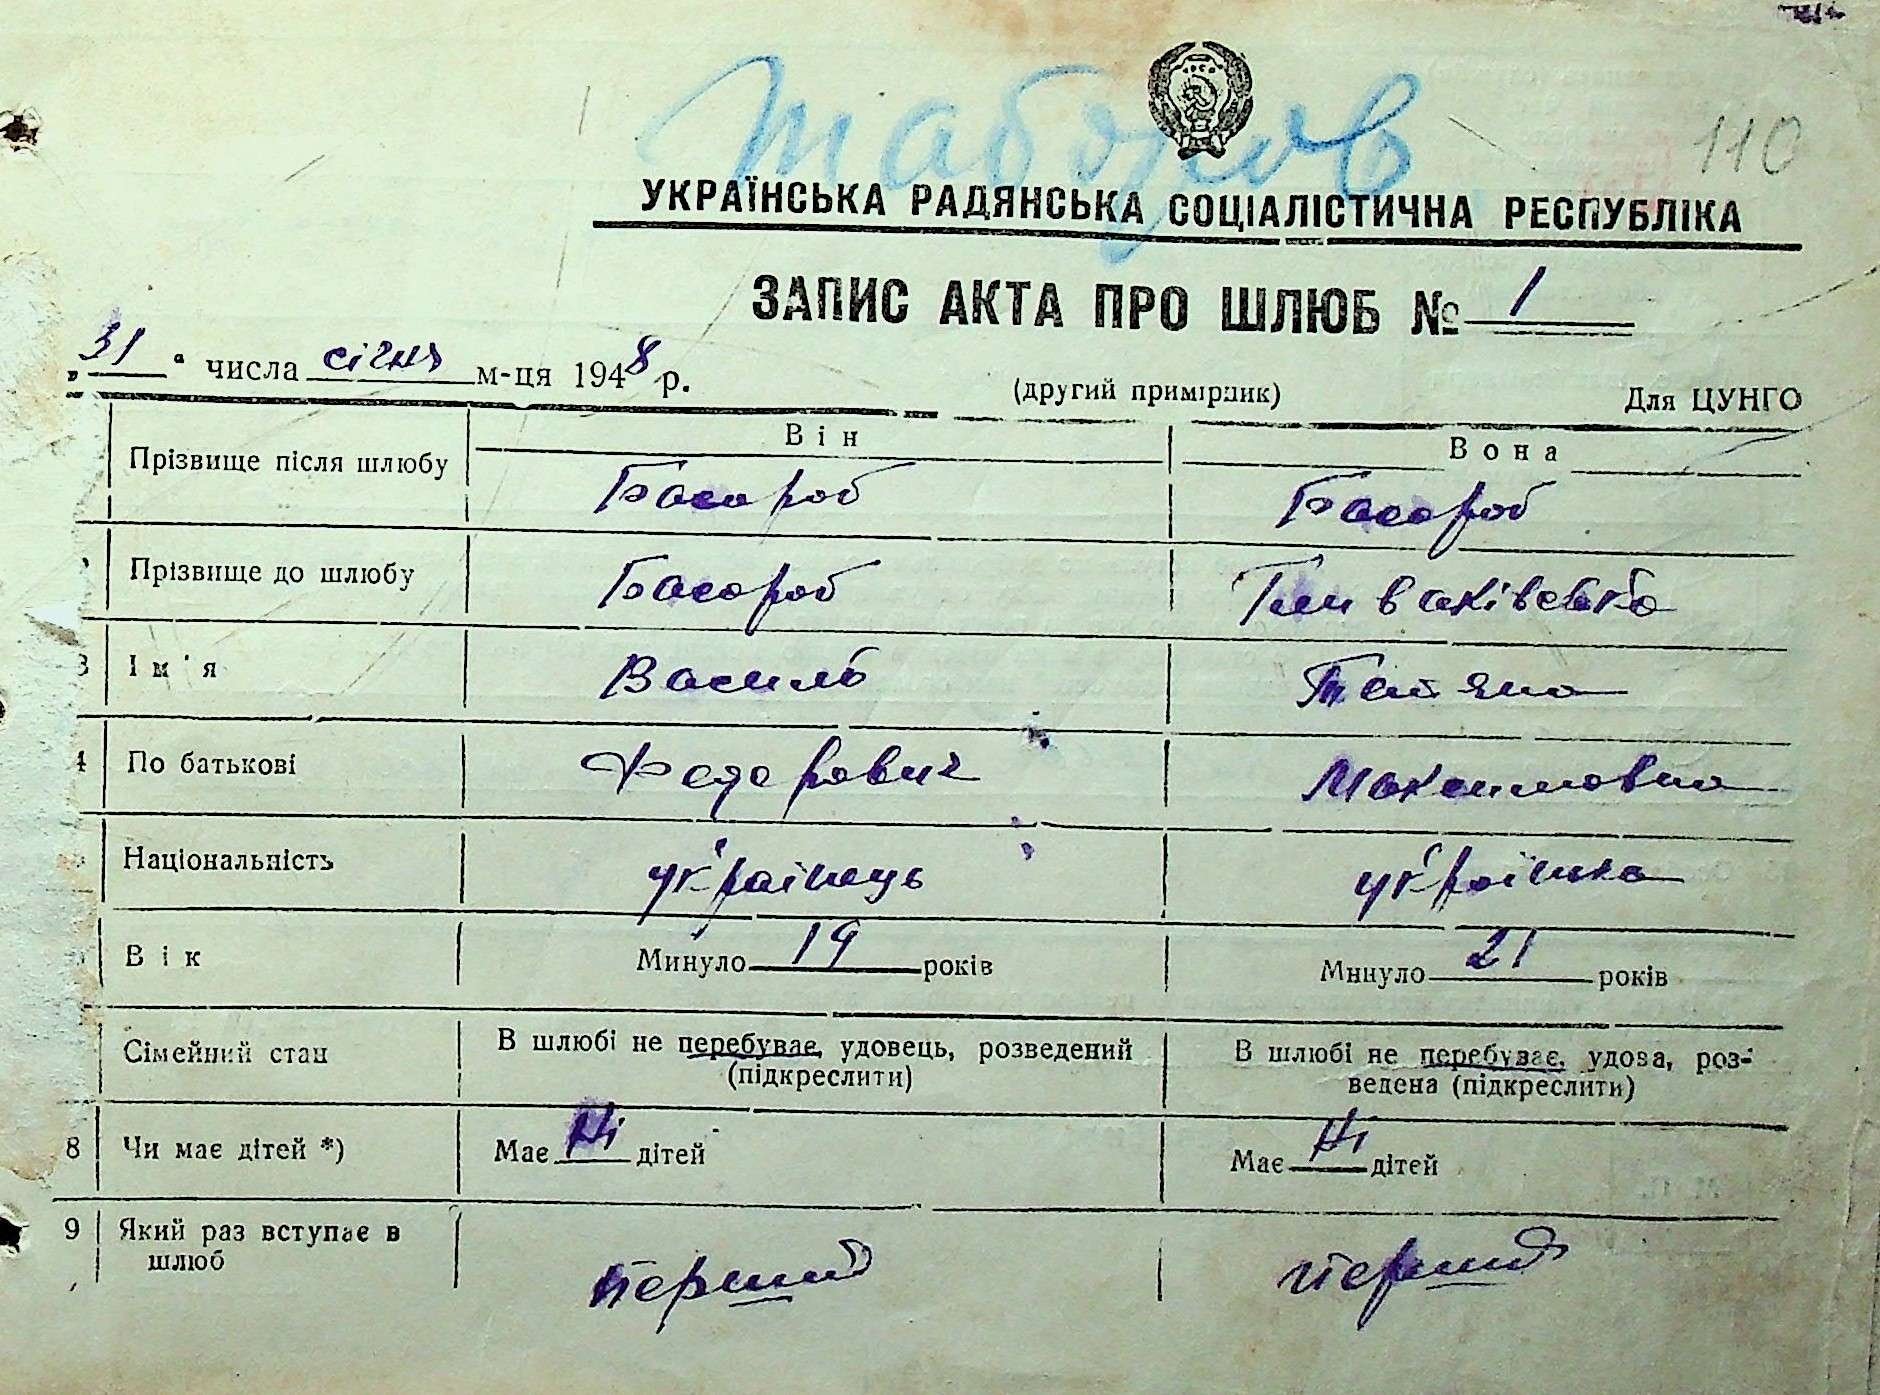 110
УКРАЇНСЬКА РАДЯНСЬКА СОЦІАЛІСТИЧНА РЕСПУБЛІКА
ЗАПИС АКТА ПРО ШЛЮБ № 1
„31“ числа січня м-ця 1948 р.
(другий примірник) Для ЦУНГО
Він Вона
Прізвище після шлюбу Басараб Басараб
Прізвище до шлюбу Басараб
3 Ім'я Василь Татяна
4 По батькові Федорович Максимовна
Національність українець українка
Вік Минуло 19 років Минуло 21 років
Сімейний стан В шлюбі не перебуває, удовець, розведений (підкреслити) В шлюбі не перебуває, удова, розведена (підкреслити)
8 Чи має дітей *) Має Ні дітей Має Ні дітей
9 Який раз вступає в шлюб перший перший